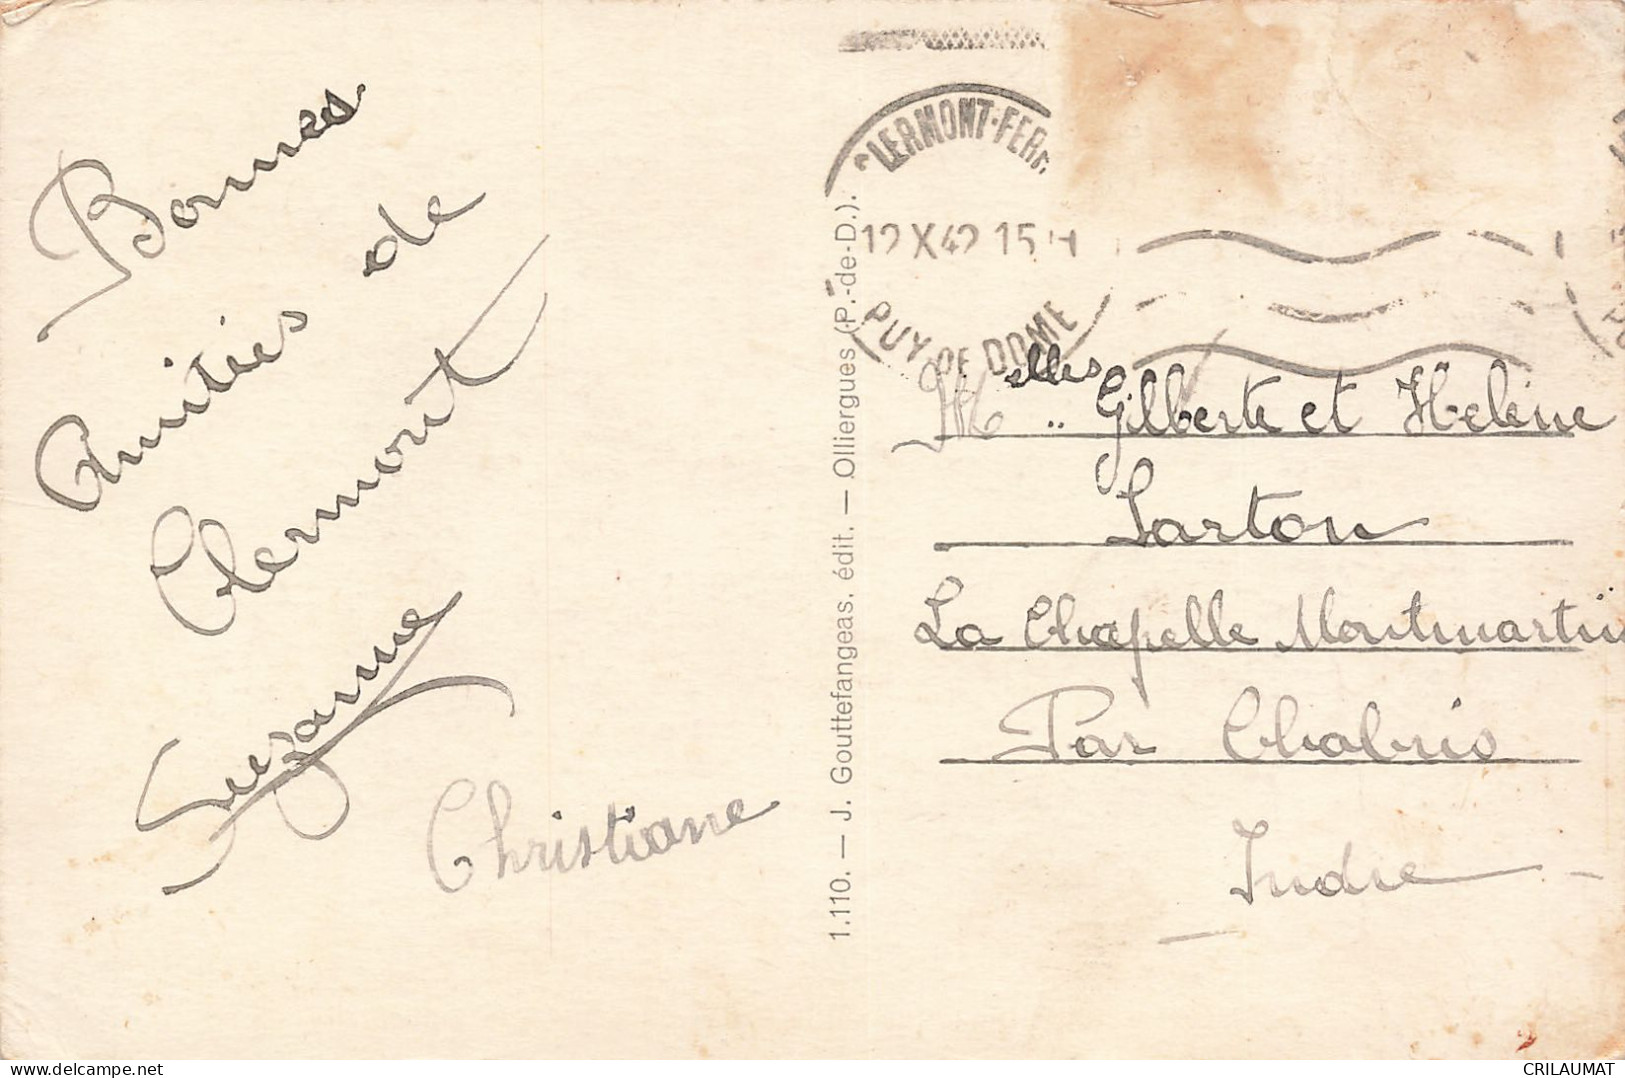 Bonnes
Amitiés de
Clermont
Suzanne
Christiane
1.110. — J. Gouttefangeas, édit. — Olliergues (P.-de-D.).
CLERMONT-FERR
12 X 42 15 H
PUY DE DOME
Melles Gilberte et Helène
Sarton
La Chapelle Montmartin
Par Chabris
Indre
www.delcampe.net
CRILAUMAT